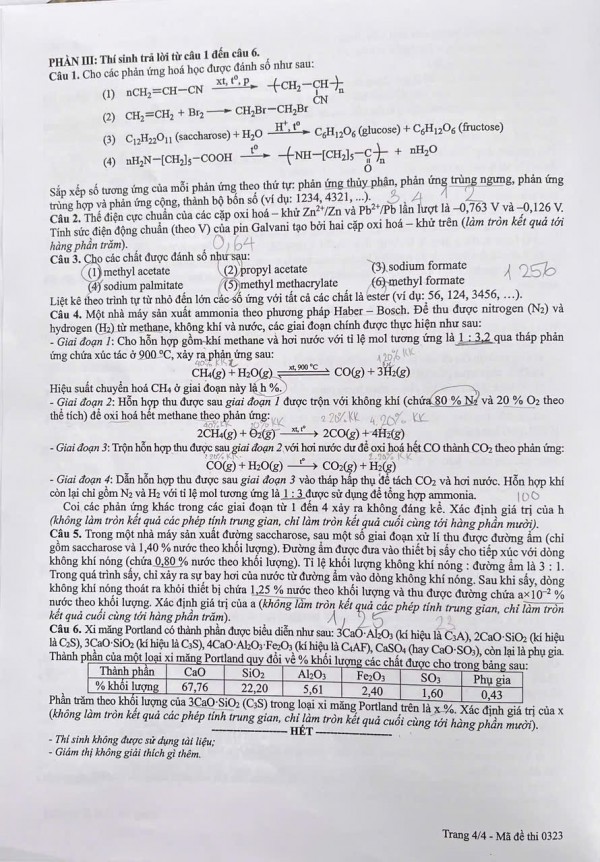 PHẦN III: Thí sinh trả lời từ câu 1 đến câu 6.
Câu 1. Cho các phản ứng hoá học được đánh số như sau:
(1) nCH₂=CH−CN xt, t°, p ⟶ −(CH₂−CH)−n
CN
(2) CH₂=CH₂ + Br₂ ⟶ CH₂Br−CH₂Br
(3) C₁₂H₂₂O₁₁ (saccharose) + H₂O H⁺, t° ⟶ C₆H₁₂O₆ (glucose) + C₆H₁₂O₆ (fructose)
(4) nH₂N−[CH₂]₅−COOH t° ⟶ −(NH−[CH₂]₅−C)−n + nH₂O
O
Sắp xếp số tương ứng của mỗi phản ứng theo thứ tự: phản ứng thủy phân, phản ứng trùng ngưng, phản ứng
trùng hợp và phản ứng cộng, thành bộ bốn số (ví dụ: 1234, 4321, ...). 3, 4 1 2
Câu 2. Thế điện cực chuẩn của các cặp oxi hoá – khử Zn²⁺/Zn và Pb²⁺/Pb lần lượt là –0,763 V và –0,126 V.
Tính sức điện động chuẩn (theo V) của pin Galvani tạo bởi hai cặp oxi hoá – khử trên (làm tròn kết quả tới
hàng phần trăm). 0,64
Câu 3. Cho các chất được đánh số như sau:
(1) methyl acetate (2) propyl acetate (3) sodium formate 1256
(4) sodium palmitate (5) methyl methacrylate (6) methyl formate
Liệt kê theo trình tự từ nhỏ đến lớn các số ứng với tất cả các chất là ester (ví dụ: 56, 124, 3456, …).
Câu 4. Một nhà máy sản xuất ammonia theo phương pháp Haber – Bosch. Để thu được nitrogen (N₂) và
hydrogen (H₂) từ methane, không khí và nước, các giai đoạn chính được thực hiện như sau:
- Giai đoạn 1: Cho hỗn hợp gồm khí methane và hơi nước với tỉ lệ mol tương ứng là 1 : 3,2 qua tháp phản
ứng chứa xúc tác ở 900 °C, xảy ra phản ứng sau:
CH₄(g) + H₂O(g) xt, 900 °C ⇌ CO(g) + 3H₂(g)
Hiệu suất chuyển hoá CH₄ ở giai đoạn này là h %.
- Giai đoạn 2: Hỗn hợp thu được sau giai đoạn 1 được trộn với không khí (chứa 80 % N₂ và 20 % O₂ theo
thể tích) để oxi hoá hết methane theo phản ứng:
2CH₄(g) + O₂(g) xt, t° ⟶ 2CO(g) + 4H₂(g)
- Giai đoạn 3: Trộn hỗn hợp thu được sau giai đoạn 2 với hơi nước dư để oxi hoá hết CO thành CO₂ theo phản ứng:
CO(g) + H₂O(g) t° ⟶ CO₂(g) + H₂(g)
- Giai đoạn 4: Dẫn hỗn hợp thu được sau giai đoạn 3 vào tháp hấp thụ để tách CO₂ và hơi nước. Hỗn hợp khí
còn lại chỉ gồm N₂ và H₂ với tỉ lệ mol tương ứng là 1 : 3 được sử dụng để tổng hợp ammonia. 100
Coi các phản ứng khác trong các giai đoạn từ 1 đến 4 xảy ra không đáng kể. Xác định giá trị của h
(không làm tròn kết quả các phép tính trung gian, chỉ làm tròn kết quả cuối cùng tới hàng phần mười).
Câu 5. Trong một nhà máy sản xuất đường saccharose, sau một số giai đoạn xử lí thu được đường ẩm (chỉ
gồm saccharose và 1,40 % nước theo khối lượng). Đường ẩm được đưa vào thiết bị sấy cho tiếp xúc với dòng
không khí nóng (chứa 0,80 % nước theo khối lượng). Tỉ lệ khối lượng không khí nóng : đường ẩm là 3 : 1.
Trong quá trình sấy, chỉ xảy ra sự bay hơi của nước từ đường ẩm vào dòng không khí nóng. Sau khi sấy, dòng
không khí nóng thoát ra khỏi thiết bị chứa 1,25 % nước theo khối lượng và thu được đường chứa a×10⁻² %
nước theo khối lượng. Xác định giá trị của a (không làm tròn kết quả các phép tính trung gian, chỉ làm tròn
kết quả cuối cùng tới hàng phần trăm). 1,25 23
Câu 6. Xi măng Portland có thành phần được biểu diễn như sau: 3CaO·Al₂O₃ (kí hiệu là C₃A), 2CaO·SiO₂ (kí hiệu
là C₂S), 3CaO·SiO₂ (kí hiệu là C₃S), 4CaO·Al₂O₃·Fe₂O₃ (kí hiệu là C₄AF), CaSO₄ (hay CaO·SO₃), còn lại là phụ gia.
Thành phần của một loại xi măng Portland quy đổi về % khối lượng các chất được cho trong bảng sau:
Thành phần CaO SiO₂ Al₂O₃ Fe₂O₃ SO₃ Phụ gia
% khối lượng 67,76 22,20 5,61 2,40 1,60 0,43
Phần trăm theo khối lượng của 3CaO·SiO₂ (C₃S) trong loại xi măng Portland trên là x %. Xác định giá trị của x
(không làm tròn kết quả các phép tính trung gian, chỉ làm tròn kết quả cuối cùng tới hàng phần mười).
HẾT
- Thí sinh không được sử dụng tài liệu;
- Giám thị không giải thích gì thêm.
Trang 4/4 - Mã đề thi 0323